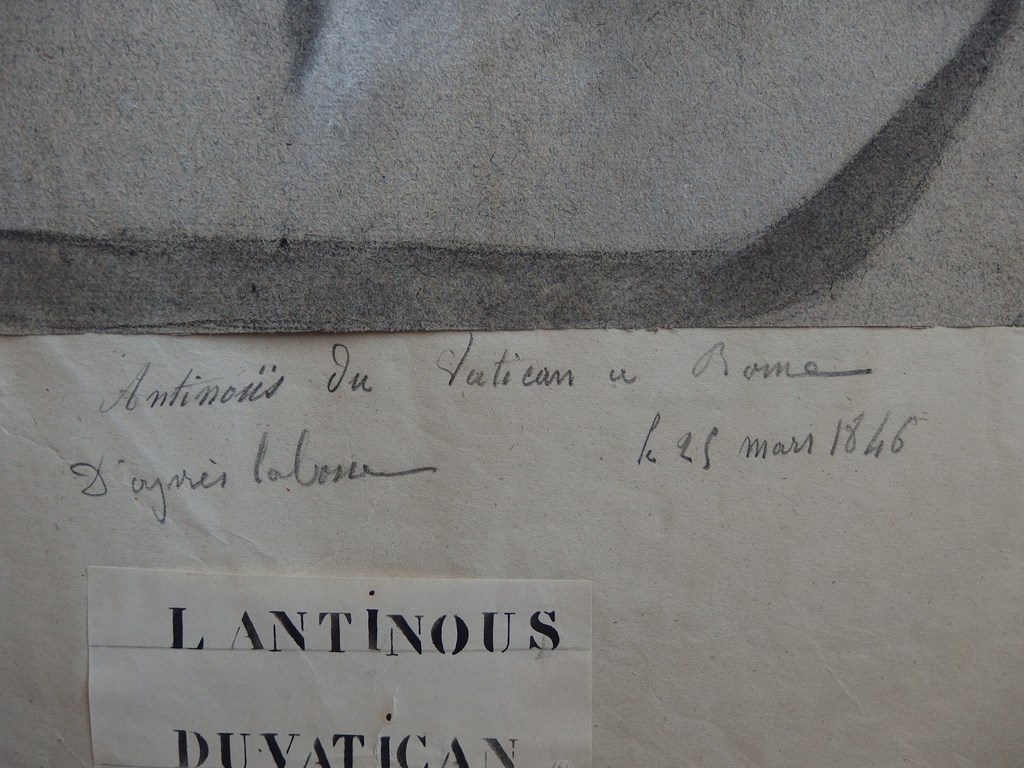 Antinoüs du Vatican a Rome
D'après labosse le 25 mars 1846
L ANTINOUS
DU·VATICAN